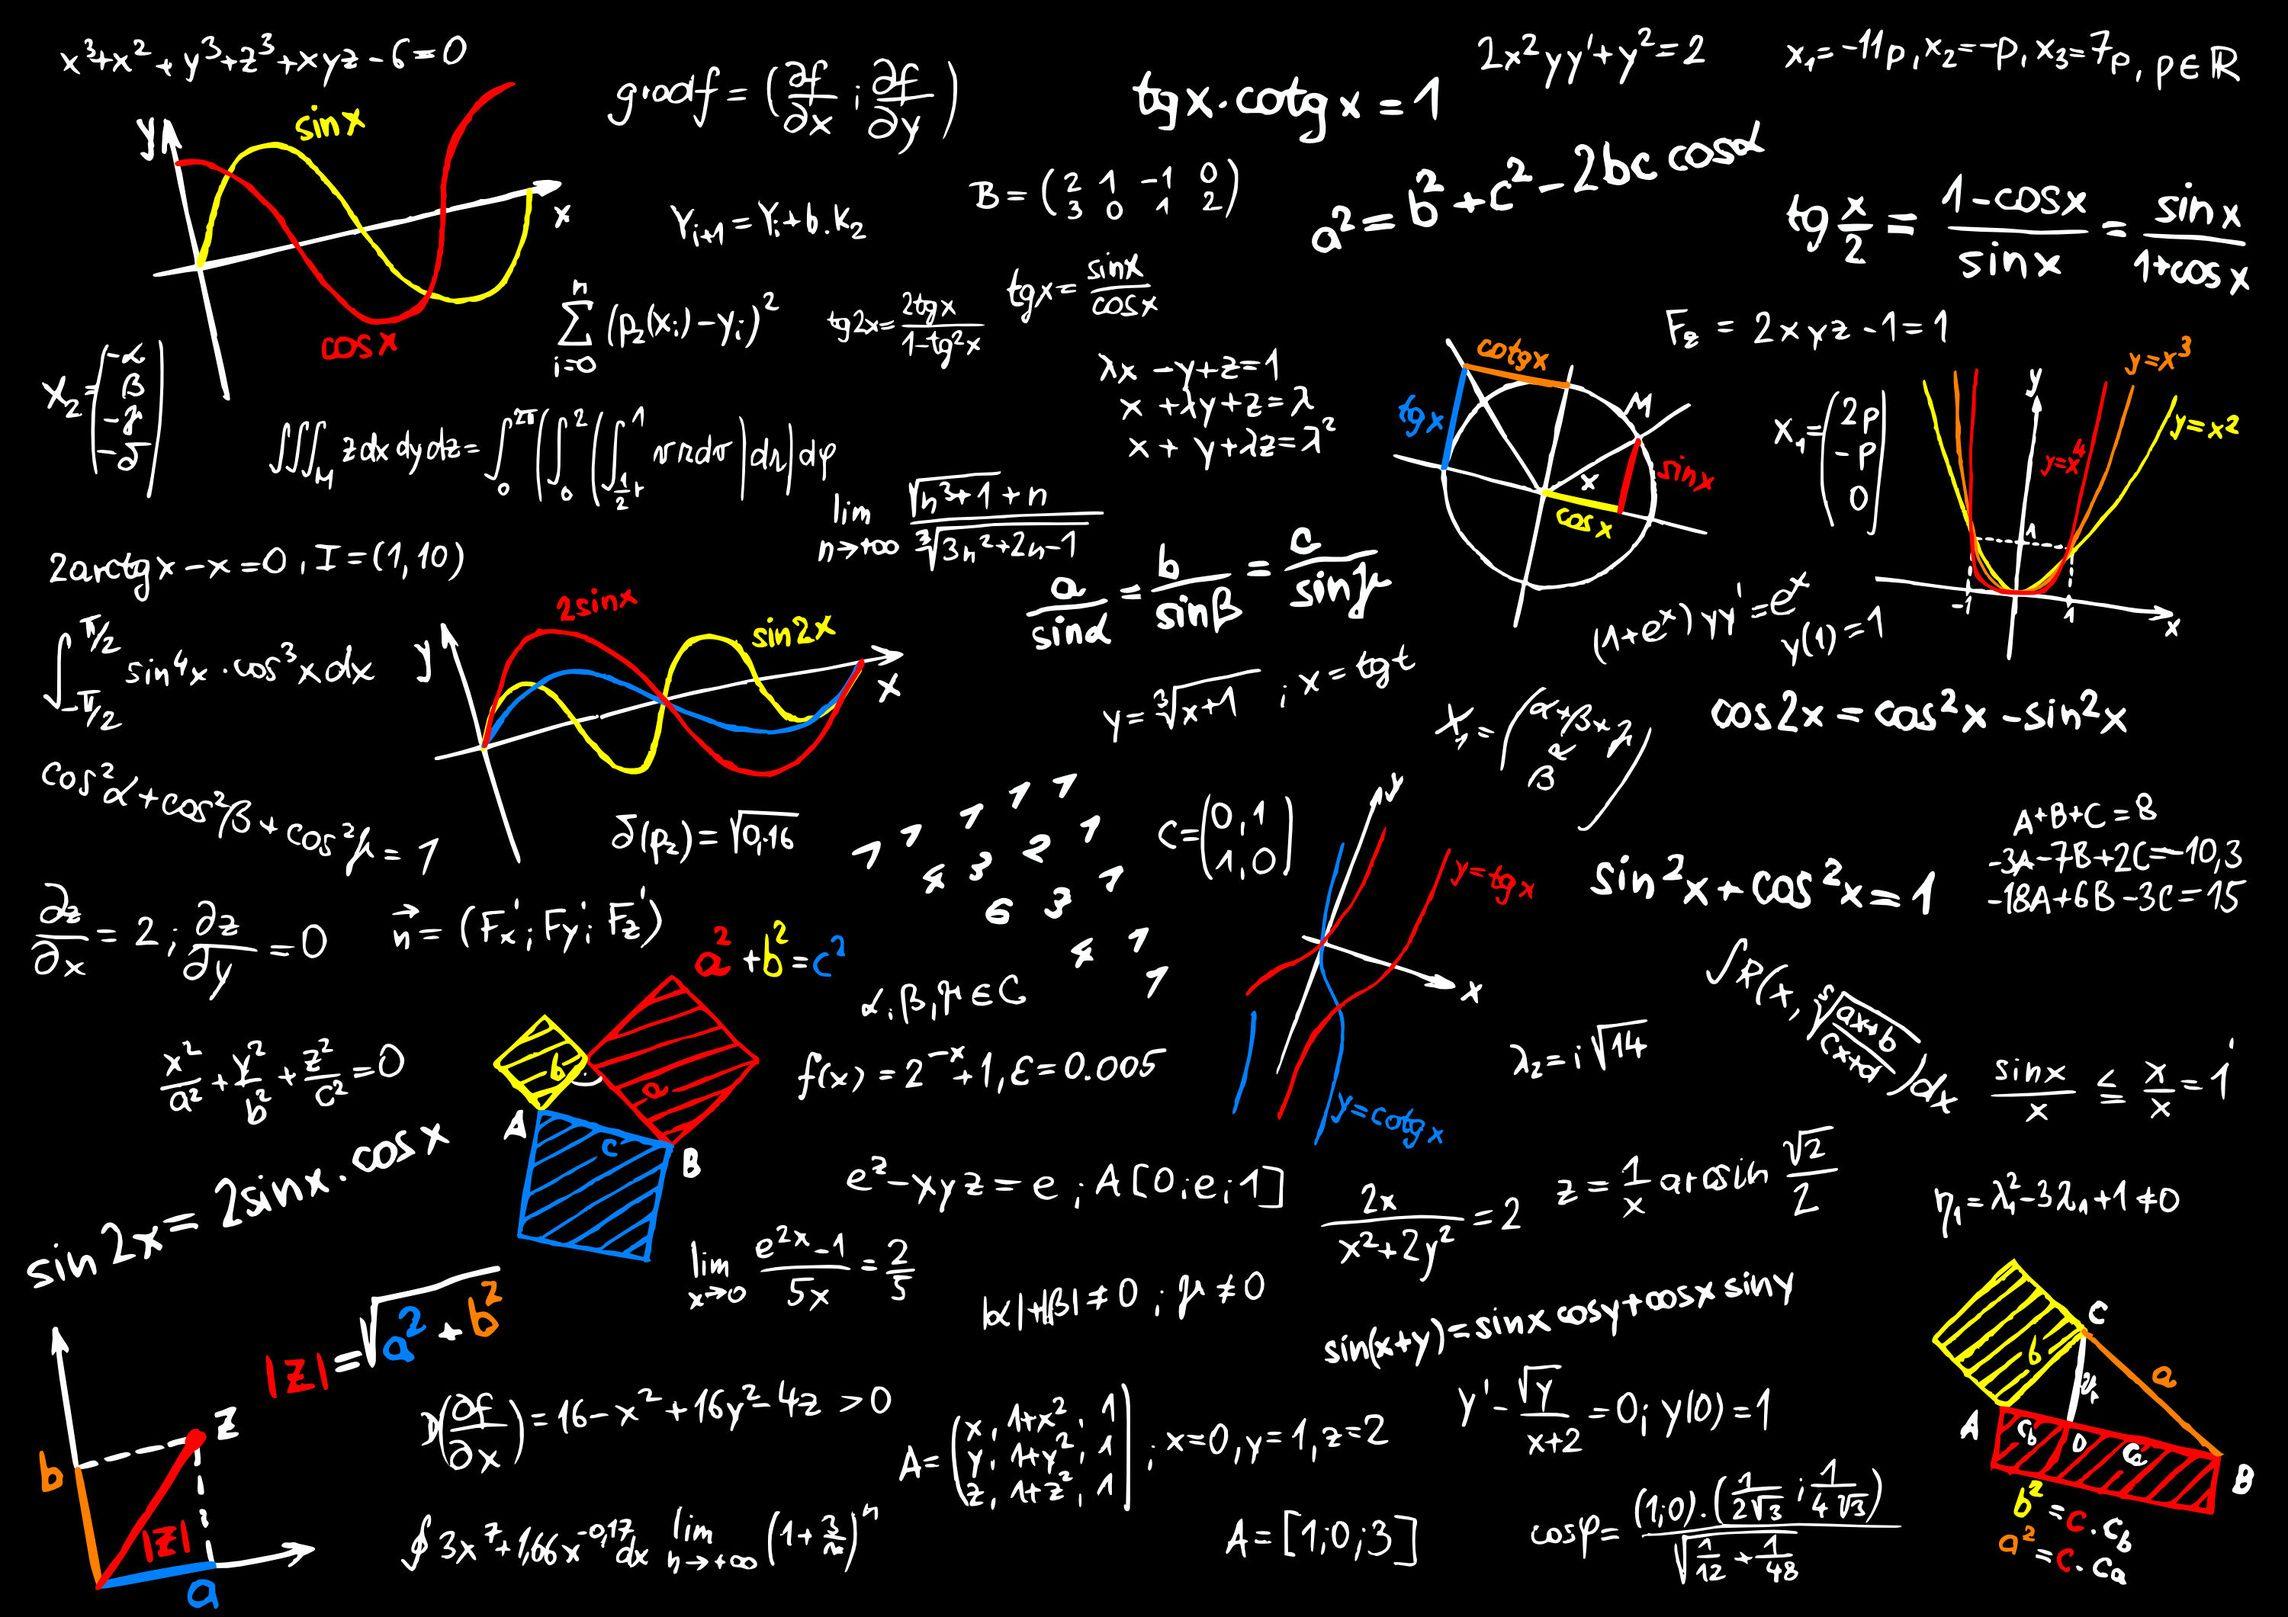 x³+x²+y³+z³+xyz-6=0
gradf = (∂f/∂x ; ∂f/∂y)
tgx·cotgx = 1
2x²yy'+y²=2
x₁=-11p, x₂=-p, x₃=7p, p∈ℝ
y
sinx
x
cosx
Yᵢ₊₁=Yᵢ+b.K₂
B = (2 1 -1 0
3 0 1 2)
a²=b²+c²-2bc cosα
tg x/2 = (1-cosx)/sinx = sinx/(1+cosx)
∑ⁿᵢ₌₀ (p₂(xᵢ)-yᵢ)²
tg2x = 2tgx/(1-tg²x)
tgx = sinx/cosx
F₂ = 2xyz-1=1
X₂= (-α
β
-γ
-δ)
λx -y+z=1
x +λy+z=λ
x + y+λz=λ²
cotgx
tgx
M
sinx
x
cosx
X₁= (2p
-p
0)
y
y=x³
y=x²
y=x⁴
1
-1
1
x
∫∫∫M zdxdydz=
lim n→+∞ (√(n³+1)+n)/∛(3n²+2n-1)
2arctgx-x=0, I=(1,10)
a/sinα = b/sinβ = c/sinγ
(1+eˣ)yy'=eˣ
y(1)=1
∫ π/2 -π/2 sin⁴x·cos³xdx
y
2sinx
sin2x
x
y=∛(x+1) ; x=tgt
X₁= (α+β+γ
α
β)
cos2x = cos²x-sin²x
cos²α+cos²β+cos²γ=1
δ(p₂)=√0,16
1 1 1 1 1
4 3 2 1
6 3 1
4 1
1
C= (0,1
1,0)
y
y=tgx
x
y=cotgx
A+B+C=8
-3A-7B+2C=-10,3
-18A+6B-3C=15
sin²x+cos²x=1
∂z/∂x=2 ; ∂z/∂y=0
n⃗=(Fx'; Fy'; Fz')
a²+b²=c²
b
a
c
A
B
α,β,γ∈C
∫R(x, ⁵√((ax+b)/(cx+d)))dx
x²/a²+y²/b²+z²/c²=0
f(x)=2⁻ˣ+1, ε=0.005
λ₂=i√14
sinx/x ≤ x/x = 1
sin2x=2sinx·cosx
eᶻ-xyz=e ; A[0;e;1]
2x/(x²+2y²)=2
z=1/x arcsin √2/2
η₁=λ₁²-3λ₁+1≠0
lim x→0 (e²ˣ-1)/5x = 2/5
|α|+|β|≠0 ; γ≠0
sin(x+y)=sinx cosy+cosx siny
|z|=√(a²+b²)
z
b
|z|
a
D(∂f/∂x)=16-x²+16y²-4z >0
A= (x, 1+x², 1
y, 1+y², 1
z, 1+z², 1) ; x=0, y=1, z=2
y'-√y/(x+2)=0; y(0)=1
C
b
a
A
D
B
b²=c·cb
a²=c·ca
∮3x⁷+1,66x⁻⁰,¹⁷dx
lim n→+∞ (1+3/n)ⁿ
A=[1;0;3]
cosφ= (1;0)·(1/(2√3) ; 1/(4√3)) / √(1/12+1/48)